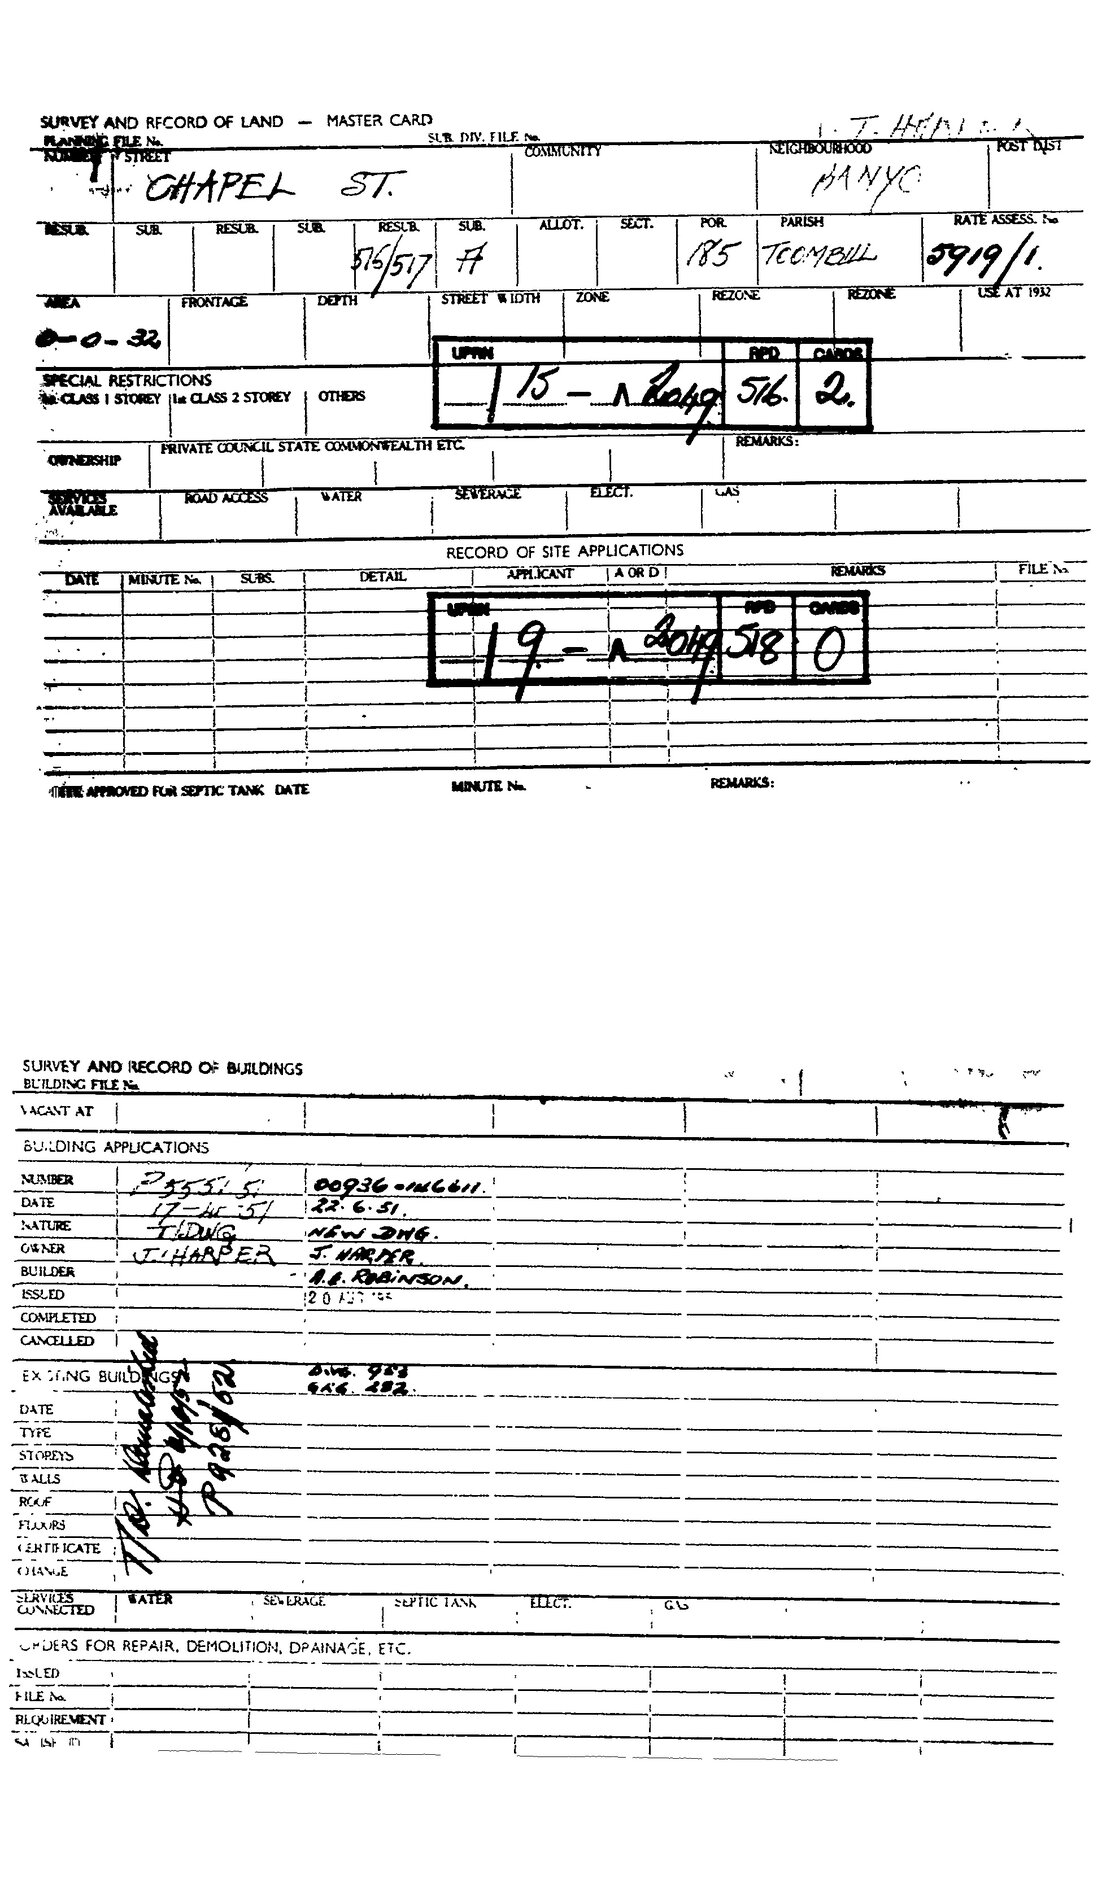 SURVEY AND RECORD OF LAND — MASTER CARD
PLANNING FILE No. SUB. DIV. FILE No.
NUMBER STREET COMMUNITY NEIGHBOURHOOD POST DIST
CHAPEL ST. BANYO
RESUB. SUB. RESUB. SUB. RESUB. SUB. ALLOT. SECT. POR. PARISH RATE ASSESS. No
516/517 A 185 TOOMBUL 5919/1.
AREA FRONTAGE DEPTH STREET WIDTH ZONE REZONE REZONE USE AT 1932
0-0-32
UPRN RPD CARDS
15 - 2049 516. 2.
SPECIAL RESTRICTIONS
1st CLASS 1 STOREY 1st CLASS 2 STOREY OTHERS
OWNERSHIP PRIVATE COUNCIL STATE COMMONWEALTH ETC. REMARKS:
SERVICES AVAILABLE ROAD ACCESS WATER SEWERAGE ELECT. GAS
RECORD OF SITE APPLICATIONS
DATE MINUTE No. SUBS. DETAIL APPLICANT A OR D REMARKS FILE No
UPRN RPD CARDS
19 - 2049 518 0
SITE APPROVED FOR SEPTIC TANK DATE MINUTE No. REMARKS:
SURVEY AND RECORD OF BUILDINGS
BUILDING FILE No.
VACANT AT
BUILDING APPLICATIONS
NUMBER P5551/51 00936
DATE 51 22.6.51.
NATURE T/DWG NEW DWG.
OWNER J. HARPER J. HARPER.
BUILDER ROBINSON.
ISSUED 20 AUG 195
COMPLETED
CANCELLED
EXISTING BUILDINGS DWG. 953
GAG. 282.
T/D. Demolished
P9281/52
DATE
TYPE
STOREYS
WALLS
ROOF
FLOORS
CERTIFICATE
CHANGE
SERVICES CONNECTED WATER SEWERAGE SEPTIC TANK ELECT. GAS
ORDERS FOR REPAIR, DEMOLITION, DRAINAGE, ETC.
ISSUED
FILE No.
REQUIREMENT